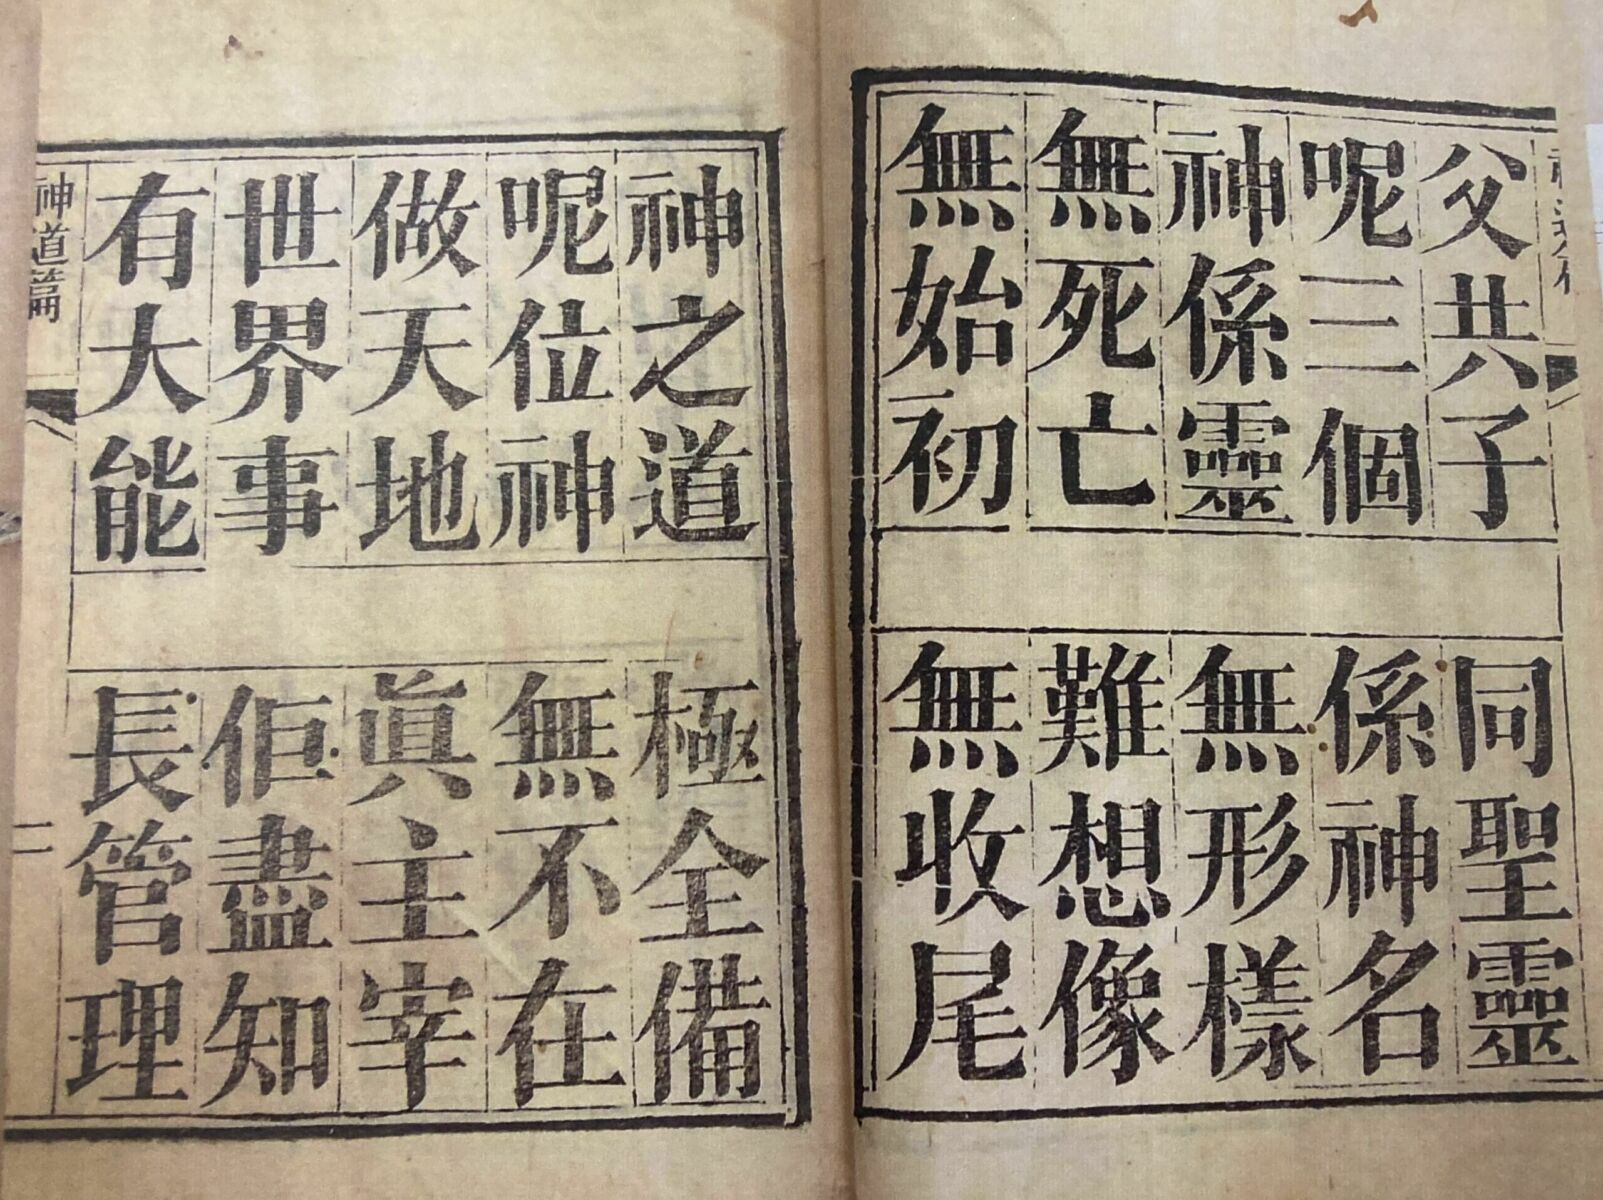 父共子 同聖靈
呢三個 係神名
神係靈 無形樣
無死亡 難想像
無始初 無收尾
神之道 極全備
呢位神 無不在
做天地 真主宰
世界事 佢盡知
有大能 長管理
神道篇
二